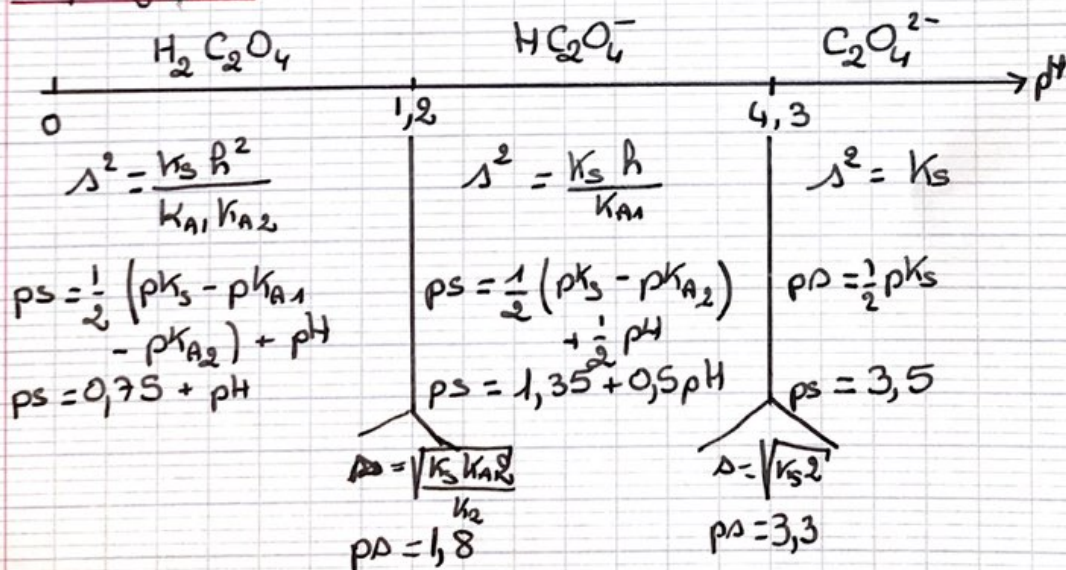 H₂C₂O₄ HC₂O₄⁻ C₂O₄²⁻
0 1,2 4,3 pH
s² = Ks h² / KA1 KA2
ps = 1/2 (pKs - pKA1
- pKA2) + pH
ps = 0,75 + pH
s² = Ks h / KA1
ps = 1/2 (pKs - pKA2)
+ 1/2 pH
ps = 1,35 + 0,5pH
s² = Ks
ps = 1/2 pKs
ps = 3,5
ps = 1,8
s = √Ks2
ps = 3,3